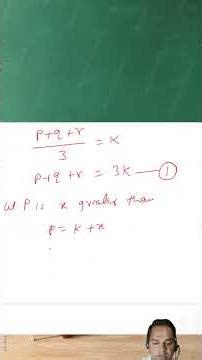 p+q+r
3
= K
p+q+r = 3K — ①
let P is x greater than
p = K + x